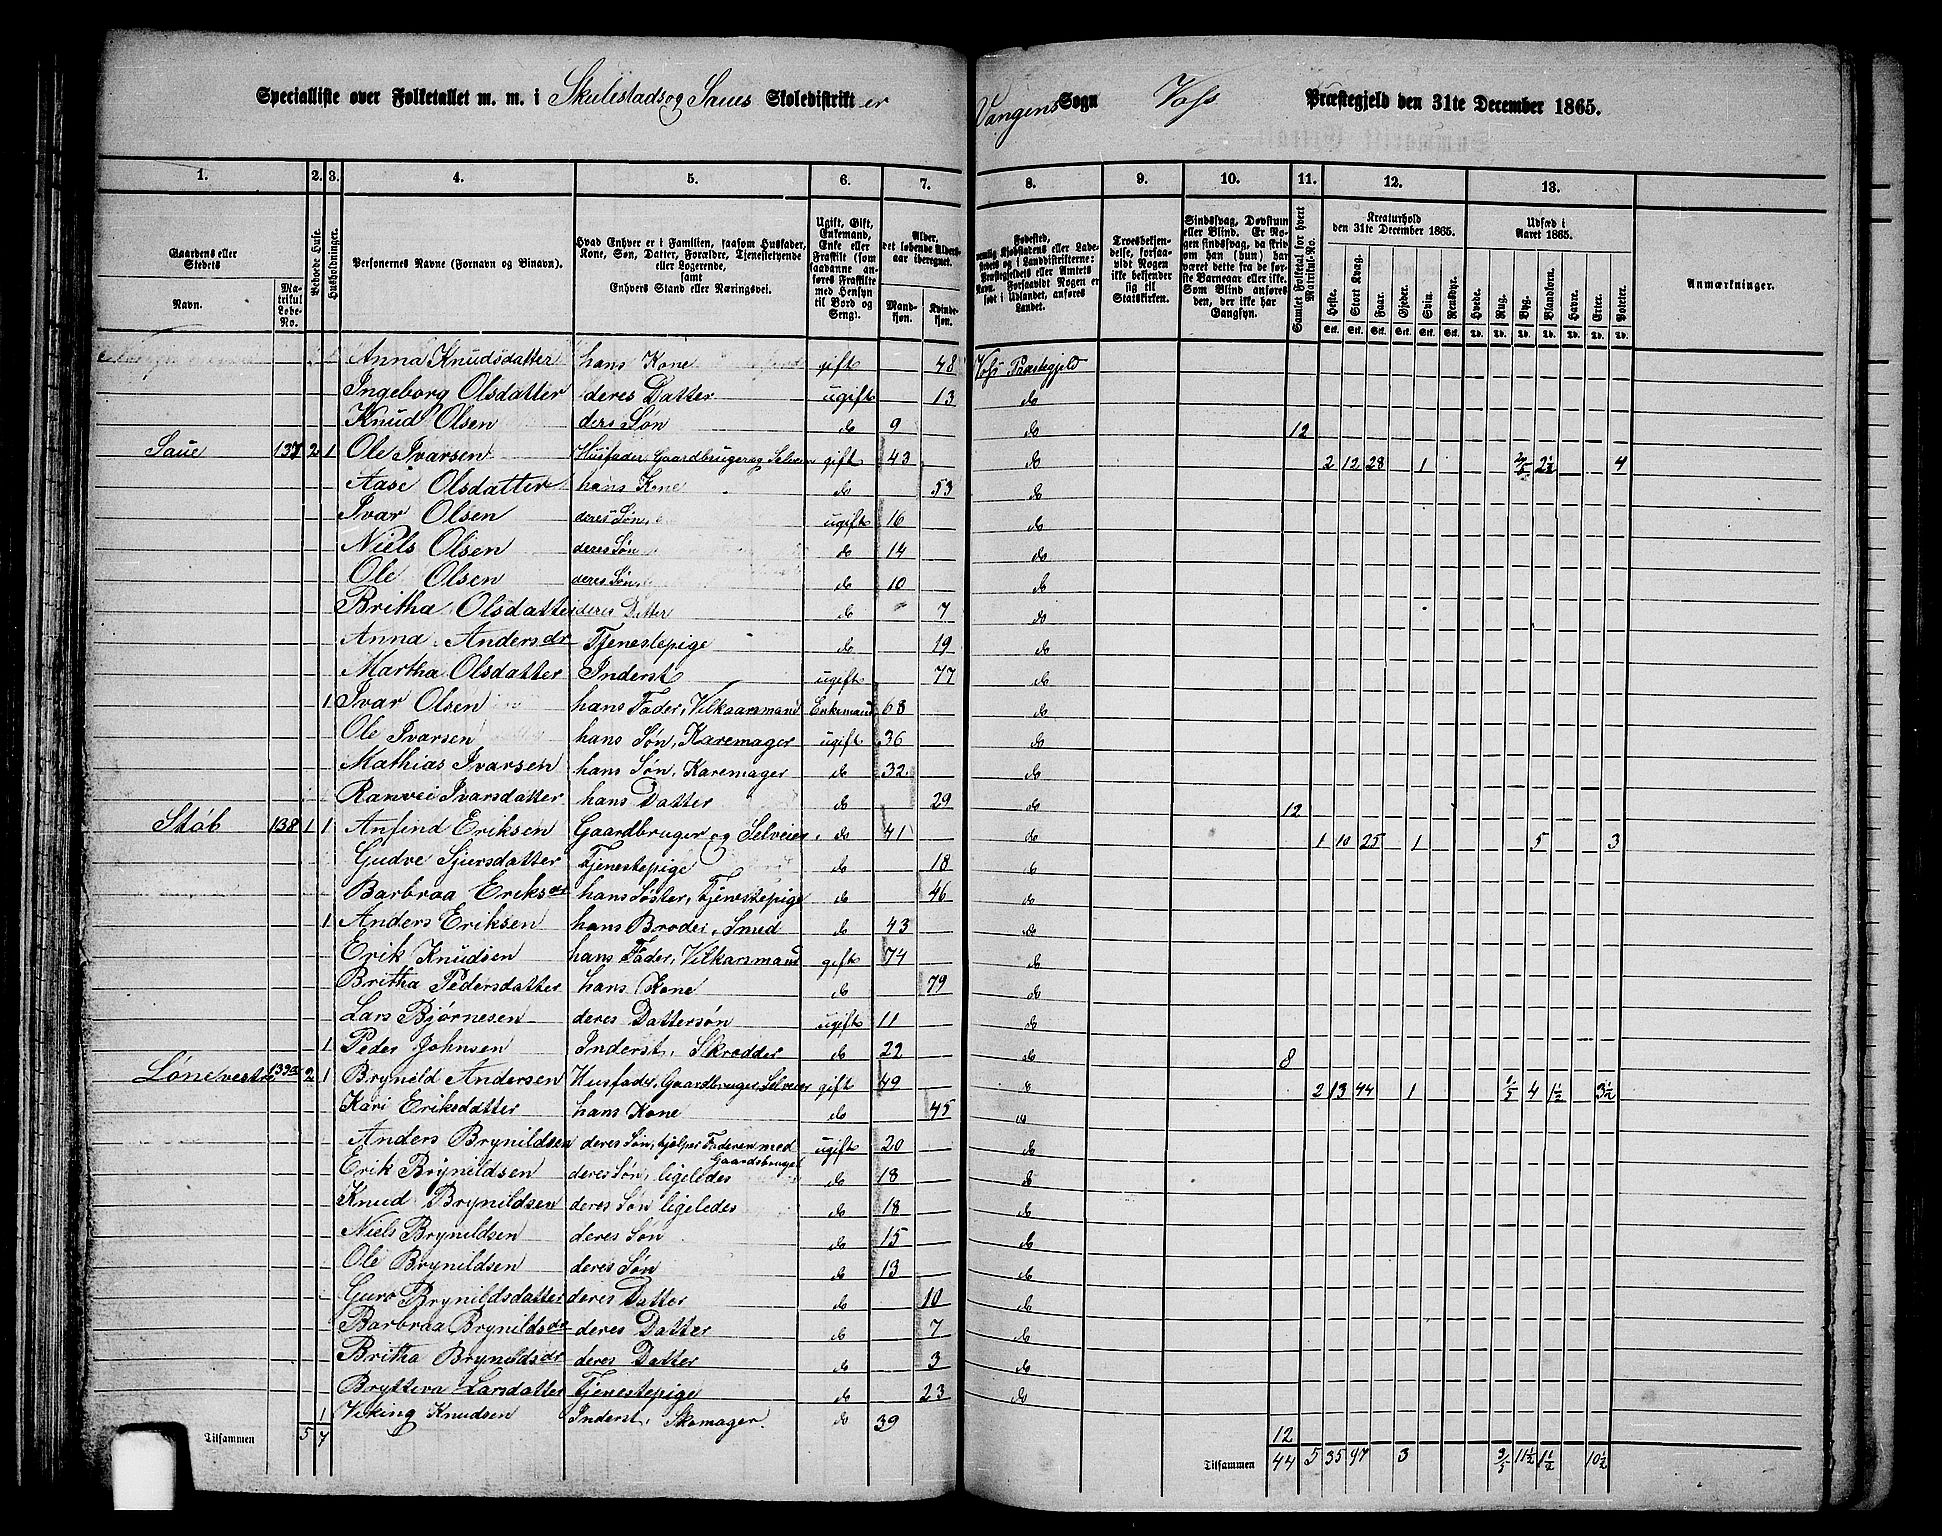 Specialliste over Folketallet m. m. i Skulestads og Saues Skoledistrikter Vangens Sogn Voss Præstegjeld den 31te December 1865.
1. 2. 3. 4. 5. 6. 7. 8. 9. 10. 11. 12. 13.
Gaardens eller Stedets
Navn. Matrikul Løbe-No.
Beboede Huse.
Husholdninger.
Personernes Navne (Fornavn og Binavn).
Hvad Enhver er i Familien, saasom Husfader, Kone, Søn, Datter, Forældre, Tjenestetyende eller Logerende, samt Enhvers Stand eller Næringsvei.
Ugift, Gift, Enkemand, Enke eller Fraskilt (som saadanne anføres Fraskilte med Hensyn til Bord og Seng).
Alder, det løbende Aldersaar iberegnet.
Mandkjøn. Kvindekjøn.
Fødested, nemlig Kjøbstadens eller Ladestedets eller i Landdistrikterne: Præstegjeldets eller Amtets Navn. Forsaavidt Nogen er født i Udlandet, anføres Landet.
Troesbekjendelse, forsaavidt Nogen ikke bekjender sig til Statskirken.
Sindssvag, Døvstum eller Blind. Er Nogen sindssvag, da skriv om han (hun) har været dette fra de første Barneaar eller ikke. Som Blind anføres den, der ikke har Gangsyn.
Samlet Folketal for hvert Matrikul-No.
Kreaturhold den 31te December 1865.
Heste. Stort Kvæg. Faar. Gjeder. Svin. Rensdyr.
Udsæd i Aaret 1865.
Hvede. Rug. Byg. Blandkorn. Havre. Erter. Poteter.
Anmærkninger.
Anna Knudsdatter hans Kone gift 48 Voss Præstegjeld
Ingeborg Olsdatter deres Datter ugift 13 do
Knud Olsen deres Søn do 9 do 12
Saue 137 2 1 Ole Ivarsen Husfader, Gaardbruger og Selveier gift 43 do 2 12 28 1 2/5 2½ 4
Aase Olsdatter hans Kone do 53 do
Ivar Olsen deres Søn ugift 16 do
Niels Olsen deres Søn do 14 do
Ole Olsen deres Søn do 10 do
Britha Olsdatter deres Datter do 7 do
Anna Andersdr Tjenestepige do 19 do
Martha Olsdatter Inderst ugift 77 do
1 Ivar Olsen hans Fader, Vilkaarsmand Enkemand 68 do
Ole Ivarsen hans Søn, Karemager ugift 36 do
Mathias Ivarsen hans Søn, Karemager do 32 do
Ranvei Ivarsdatter hans Datter do 29 do 12
Støb 138 1 1 Anfind Eriksen Gaardbruger og Selveier do 41 do 1 10 25 1 5 3
Gudve Sjursdatter Tjenestepige do 18 do
Barbraa Eriksdr hans Søster, Tjenestepige do 46 do
1 Anders Eriksen hans Broder, Smed do 43 do
Erik Knudsen hans Fader, Vilkarsmand gift 74 do
Britha Pedersdatter hans Kone do 79 do
Lars Bjørnesen deres Dattersøn ugift 11 do
1 Peder Johnsen Inderst, Skrædder do 22 do 8
Løne vestre 139a 2 1 Brynild Andersen Husfader, Gaardbruger Selveier gift 49 do 2 13 44 1 1/5 4 1½ 3½
Kari Eriksdatter hans Kone do 45 do
Anders Brynildsen deres Søn, hjelper Faderen med Gaardsbruget ugift 20 do
Erik Brynildsen deres Søn, ligeledes do 18 do
Knud Brynildsen deres Søn ligeledes do 18 do
Niels Brynildsen deres Søn do 15 do
Ole Brynildsen deres Søn do 13 do
Guro Brynildsdatter deres Datter do 10 do
Barbraa Brynildsdr deres Datter do 7 do
Britha Brynildsdr deres Datter do 3 do
Brytteva Larsdatter Tjenestepige do 23 do
1 Viking Knudsen Inderst, Skomager do 39 12
Tilsammen 5 7 Tilsammen 44 5 35 97 3 3/5 11½ 1½ 10½